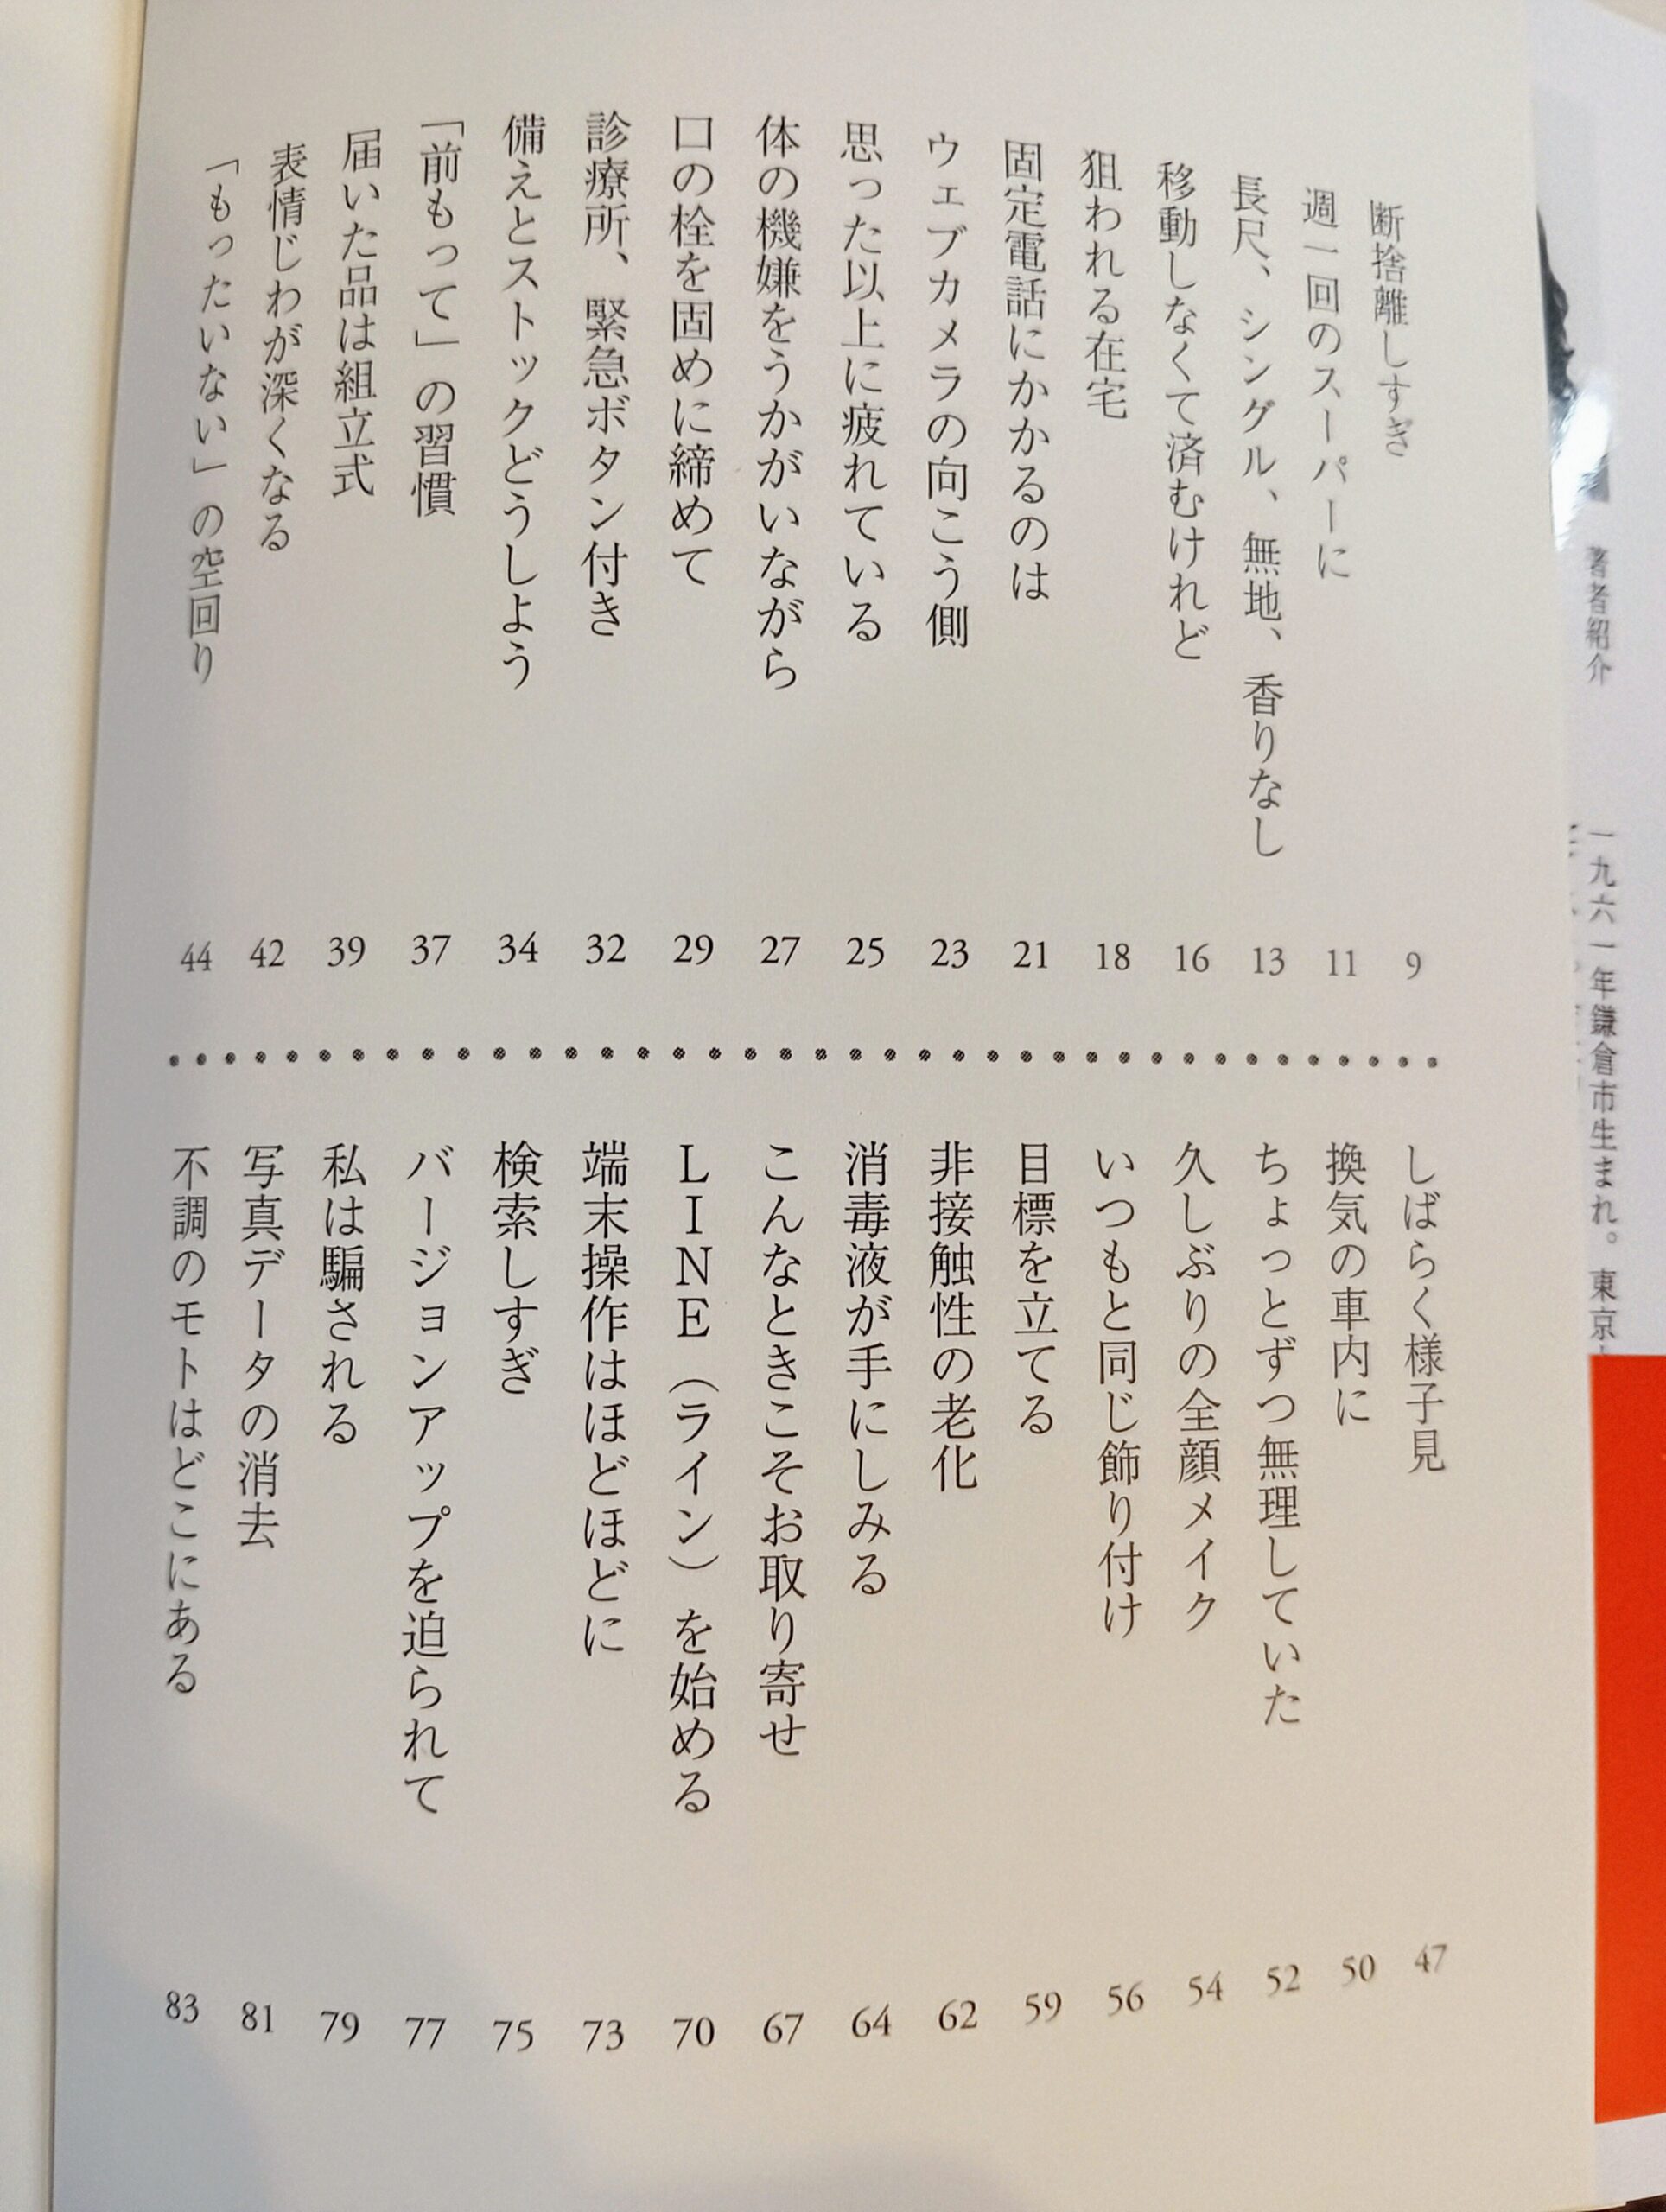 著者紹介　一九六一年鎌倉市生まれ。東京
断捨離しすぎ 9
週一回のスーパーに 11
長尺、シングル、無地、香りなし 13
移動しなくて済むけれど 16
狙われる在宅 18
固定電話にかかるのは 21
ウェブカメラの向こう側 23
思った以上に疲れている 25
体の機嫌をうかがいながら 27
口の栓を固めに締めて 29
診療所、緊急ボタン付き 32
備えとストックどうしよう 34
「前もって」の習慣 37
届いた品は組立式 39
表情じわが深くなる 42
「もったいない」の空回り 44
しばらく様子見 47
換気の車内に 50
ちょっとずつ無理していた 52
久しぶりの全顔メイク 54
いつもと同じ飾り付け 56
目標を立てる 59
非接触性の老化 62
消毒液が手にしみる 64
こんなときこそお取り寄せ 67
LINE（ライン）を始める 70
端末操作はほどほどに 73
検索しすぎ 75
バージョンアップを迫られて 77
私は騙される 79
写真データの消去 81
不調のモトはどこにある 83